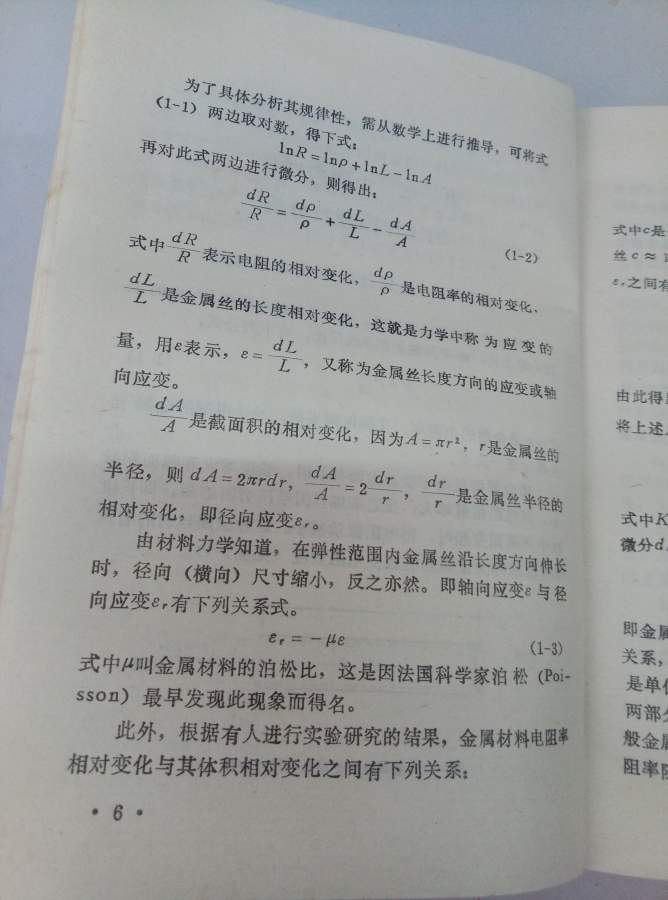 为了具体分析其规律性，需从数学上进行推导，可将式
(1-1) 两边取对数，得下式：
lnR＝lnρ＋lnL－lnA
再对此式两边进行微分，则得出：
dR/R＝dρ/ρ＋dL/L－dA/A (1-2)
式中dR/R表示电阻的相对变化，dρ/ρ是电阻率的相对变化，
dL/L是金属丝的长度相对变化，这就是力学中称为应变的
量，用ε表示，ε＝dL/L，又称为金属丝长度方向的应变或轴
向应变。
dA/A是截面积的相对变化，因为A＝πr²，r是金属丝的
半径，则dA＝2πrdr，dA/A＝2dr/r，dr/r是金属丝半径的
相对变化，即径向应变εr。
由材料力学知道，在弹性范围内金属丝沿长度方向伸长
时，径向（横向）尺寸缩小，反之亦然。即轴向应变ε与径
向应变εr有下列关系式。
εr＝－με (1-3)
式中μ叫金属材料的泊松比，这是因法国科学家泊松 (Poi-
sson) 最早发现此现象而得名。
此外，根据有人进行实验研究的结果，金属材料电阻率
相对变化与其体积相对变化之间有下列关系：
• 6 •
式中c是
丝c≈
εr之间有
由此得
将上述
式中K
微分d
即金属
关系，
是单
两部分
般金属
阻率